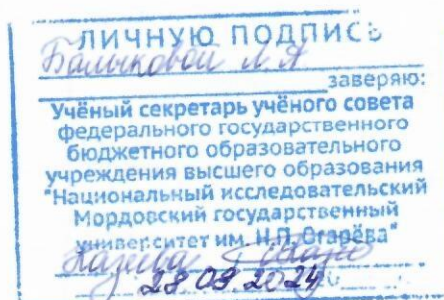 ЛИЧНУЮ ПОДПИСЬ
Балыковой Л. А
заверяю:
Учёный секретарь учёного совета
федерального государственного
бюджетного образовательного
учреждения высшего образования
"Национальный исследовательский
Мордовский государственный
университет им. Н.П. Огарёва"
28 09 2024